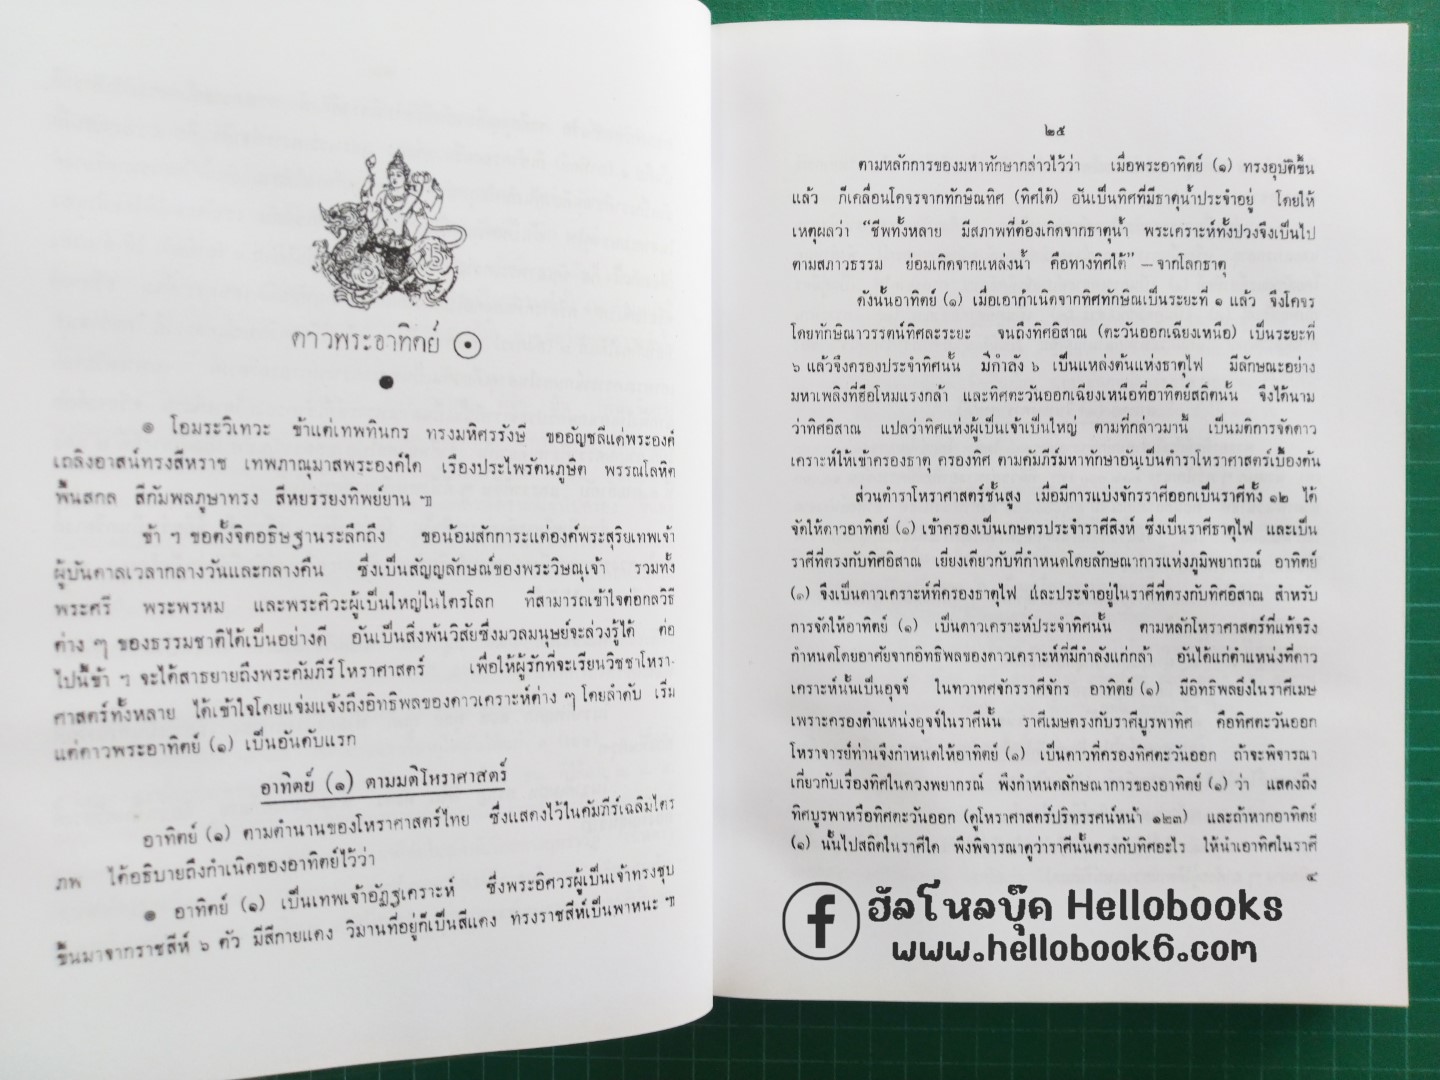 ดาวพระอาทิตย์
๏ โอมระวิเทวะ ข้าแต่เทพทินกร ทรงมหิศรรังษี ขออัญชลีแด่พระองค์
เถลิงอาสน์ทรงสีหราช เทพภาณุมาสพระองค์ใด เรืองประไพรัตนภูษิต พรรณโลหิต
พื้นสกล สีกัมพลภูษาทรง สีหยรรยงทิพย์ยาน ฯ
ข้า ฯ ขอตั้งจิตอธิษฐานระลึกถึง ขอน้อมสักการะแต่องค์พระสุริยเทพเจ้า
ผู้บันดาลเวลากลางวันและกลางคืน ซึ่งเป็นสัญญลักษณ์ของพระวิษณุเจ้า รวมทั้ง
พระศรี พระพรหม และพระศิวะผู้เป็นใหญ่ในไตรโลก ที่สามารถเข้าใจต่อกลวิธี
ต่าง ๆ ของธรรมชาติได้เป็นอย่างดี อันเป็นสิ่งพ้นวิสัยซึ่งมวลมนุษย์จะล่วงรู้ได้ ต่อ
ไปนี้ข้า ฯ จะได้สาธยายถึงพระคัมภีร์โหราศาสตร์ เพื่อให้ผู้รักที่จะเรียนวิชชาโหรา-
ศาสตร์ทั้งหลาย ได้เข้าใจโดยแจ่มแจ้งถึงอิทธิพลของดาวเคราะห์ต่าง ๆ โดยลำดับ เริ่ม
แต่ดาวพระอาทิตย์ (๑) เป็นอันดับแรก
อาทิตย์ (๑) ตามมติโหราศาสตร์
อาทิตย์ (๑) ตามตำนานของโหราศาสตร์ไทย ซึ่งแสดงไว้ในคัมภีร์เฉลิมไตร
ภพ ได้อธิบายถึงกำเนิดของอาทิตย์ไว้ว่า
๏ อาทิตย์ (๑) เป็นเทพเจ้าอัฏฐเคราะห์ ซึ่งพระอิศวรผู้เป็นเจ้าทรงชุบ
ขึ้นมาจากราชสีห์ ๖ ตัว มีสีกายแดง วิมานที่อยู่ก็เป็นสีแดง ทรงราชสีห์เป็นพาหนะ ฯ
๒๕
ตามหลักการของมหาทักษากล่าวไว้ว่า เมื่อพระอาทิตย์ (๑) ทรงอุบัติขึ้น
แล้ว ก็เคลื่อนโคจรจากทักษิณทิศ (ทิศใต้) อันเป็นทิศที่มีธาตุน้ำประจำอยู่ โดยให้
เหตุผลว่า “ชีพทั้งหลาย มีสภาพที่ต้องเกิดจากธาตุน้ำ พระเคราะห์ทั้งปวงจึงเป็นไป
ตามสภาวธรรม ย่อมเกิดจากแหล่งน้ำ คือทางทิศใต้” — จากโลกธาตุ
ดังนั้นอาทิตย์ (๑) เมื่อเอากำเนิดจากทิศทักษิณเป็นระยะที่ ๑ แล้ว จึงโคจร
โดยทักษิณาวรรตน์ทิศละระยะ จนถึงทิศอิสาณ (ตะวันออกเฉียงเหนือ) เป็นระยะที่
๖ แล้วจึงครองประจำทิศนั้น มีกำลัง ๖ เป็นแหล่งต้นแห่งธาตุไฟ มีลักษณะอย่าง
มหาเพลิงที่ฮือโหมแรงกล้า และทิศตะวันออกเฉียงเหนือที่อาทิตย์สถิตนั้น จึงได้นาม
ว่าทิศอิสาณ แปลว่าทิศแห่งผู้เป็นเจ้าเป็นใหญ่ ตามที่กล่าวมานี้ เป็นมติการจัดดาว
เคราะห์ให้เข้าครองธาตุ ครองทิศ ตามคัมภีร์มหาทักษาอันเป็นตำราโหราศาสตร์เบื้องต้น
ส่วนตำราโหราศาสตร์ชั้นสูง เมื่อมีการแบ่งจักรราศีออกเป็นราศีทั้ง ๑๒ ได้
จัดให้ดาวอาทิตย์ (๑) เข้าครองเป็นเกษตรประจำราศีสิงห์ ซึ่งเป็นราศีธาตุไฟ และเป็น
ราศีที่ตรงกับทิศอิสาณ เยี่ยงเดียวกับที่กำหนดโดยลักษณาการแห่งภูมิพยากรณ์ อาทิตย์
(๑) จึงเป็นดาวเคราะห์ที่ครองธาตุไฟ และประจำอยู่ในราศีที่ตรงกับทิศอิสาณ สำหรับ
การจัดให้อาทิตย์ (๑) เป็นดาวเคราะห์ประจำทิศนั้น ตามหลักโหราศาสตร์ที่แท้จริง
กำหนดโดยอาศัยจากอิทธิพลของดาวเคราะห์ที่มีกำลังแก่กล้า อันได้แก่ตำแหน่งที่ดาว
เคราะห์นั้นเป็นอุจจ์ ในทวาทศจักรราศีจักร อาทิตย์ (๑) มีอิทธิพลยิ่งในราศีเมษ
เพราะครองตำแหน่งอุจจ์ในราศีนั้น ราศีเมษตรงกับราศีบูรพาทิศ คือทิศตะวันออก
โหราจารย์ท่านจึงกำหนดให้อาทิตย์ (๑) เป็นดาวที่ครองทิศตะวันออก ถ้าจะพิจารณา
เกี่ยวกับเรื่องทิศในดวงพยากรณ์ พึงกำหนดลักษณาการของอาทิตย์ (๑) ว่า แสดงถึง
ทิศบูรพาหรือทิศตะวันออก (ดูโหราศาสตร์ปริทรรศน์หน้า ๑๒๓) และถ้าหากอาทิตย์
(๑) นั้นไปสถิตในราศีใด พึงพิจารณาดูว่าราศีนั้นตรงกับทิศอะไร ให้นำเอาทิศในราศี
๔
f ฮัลโหลบุ๊ค Hellobooks
www.hellobook6.com